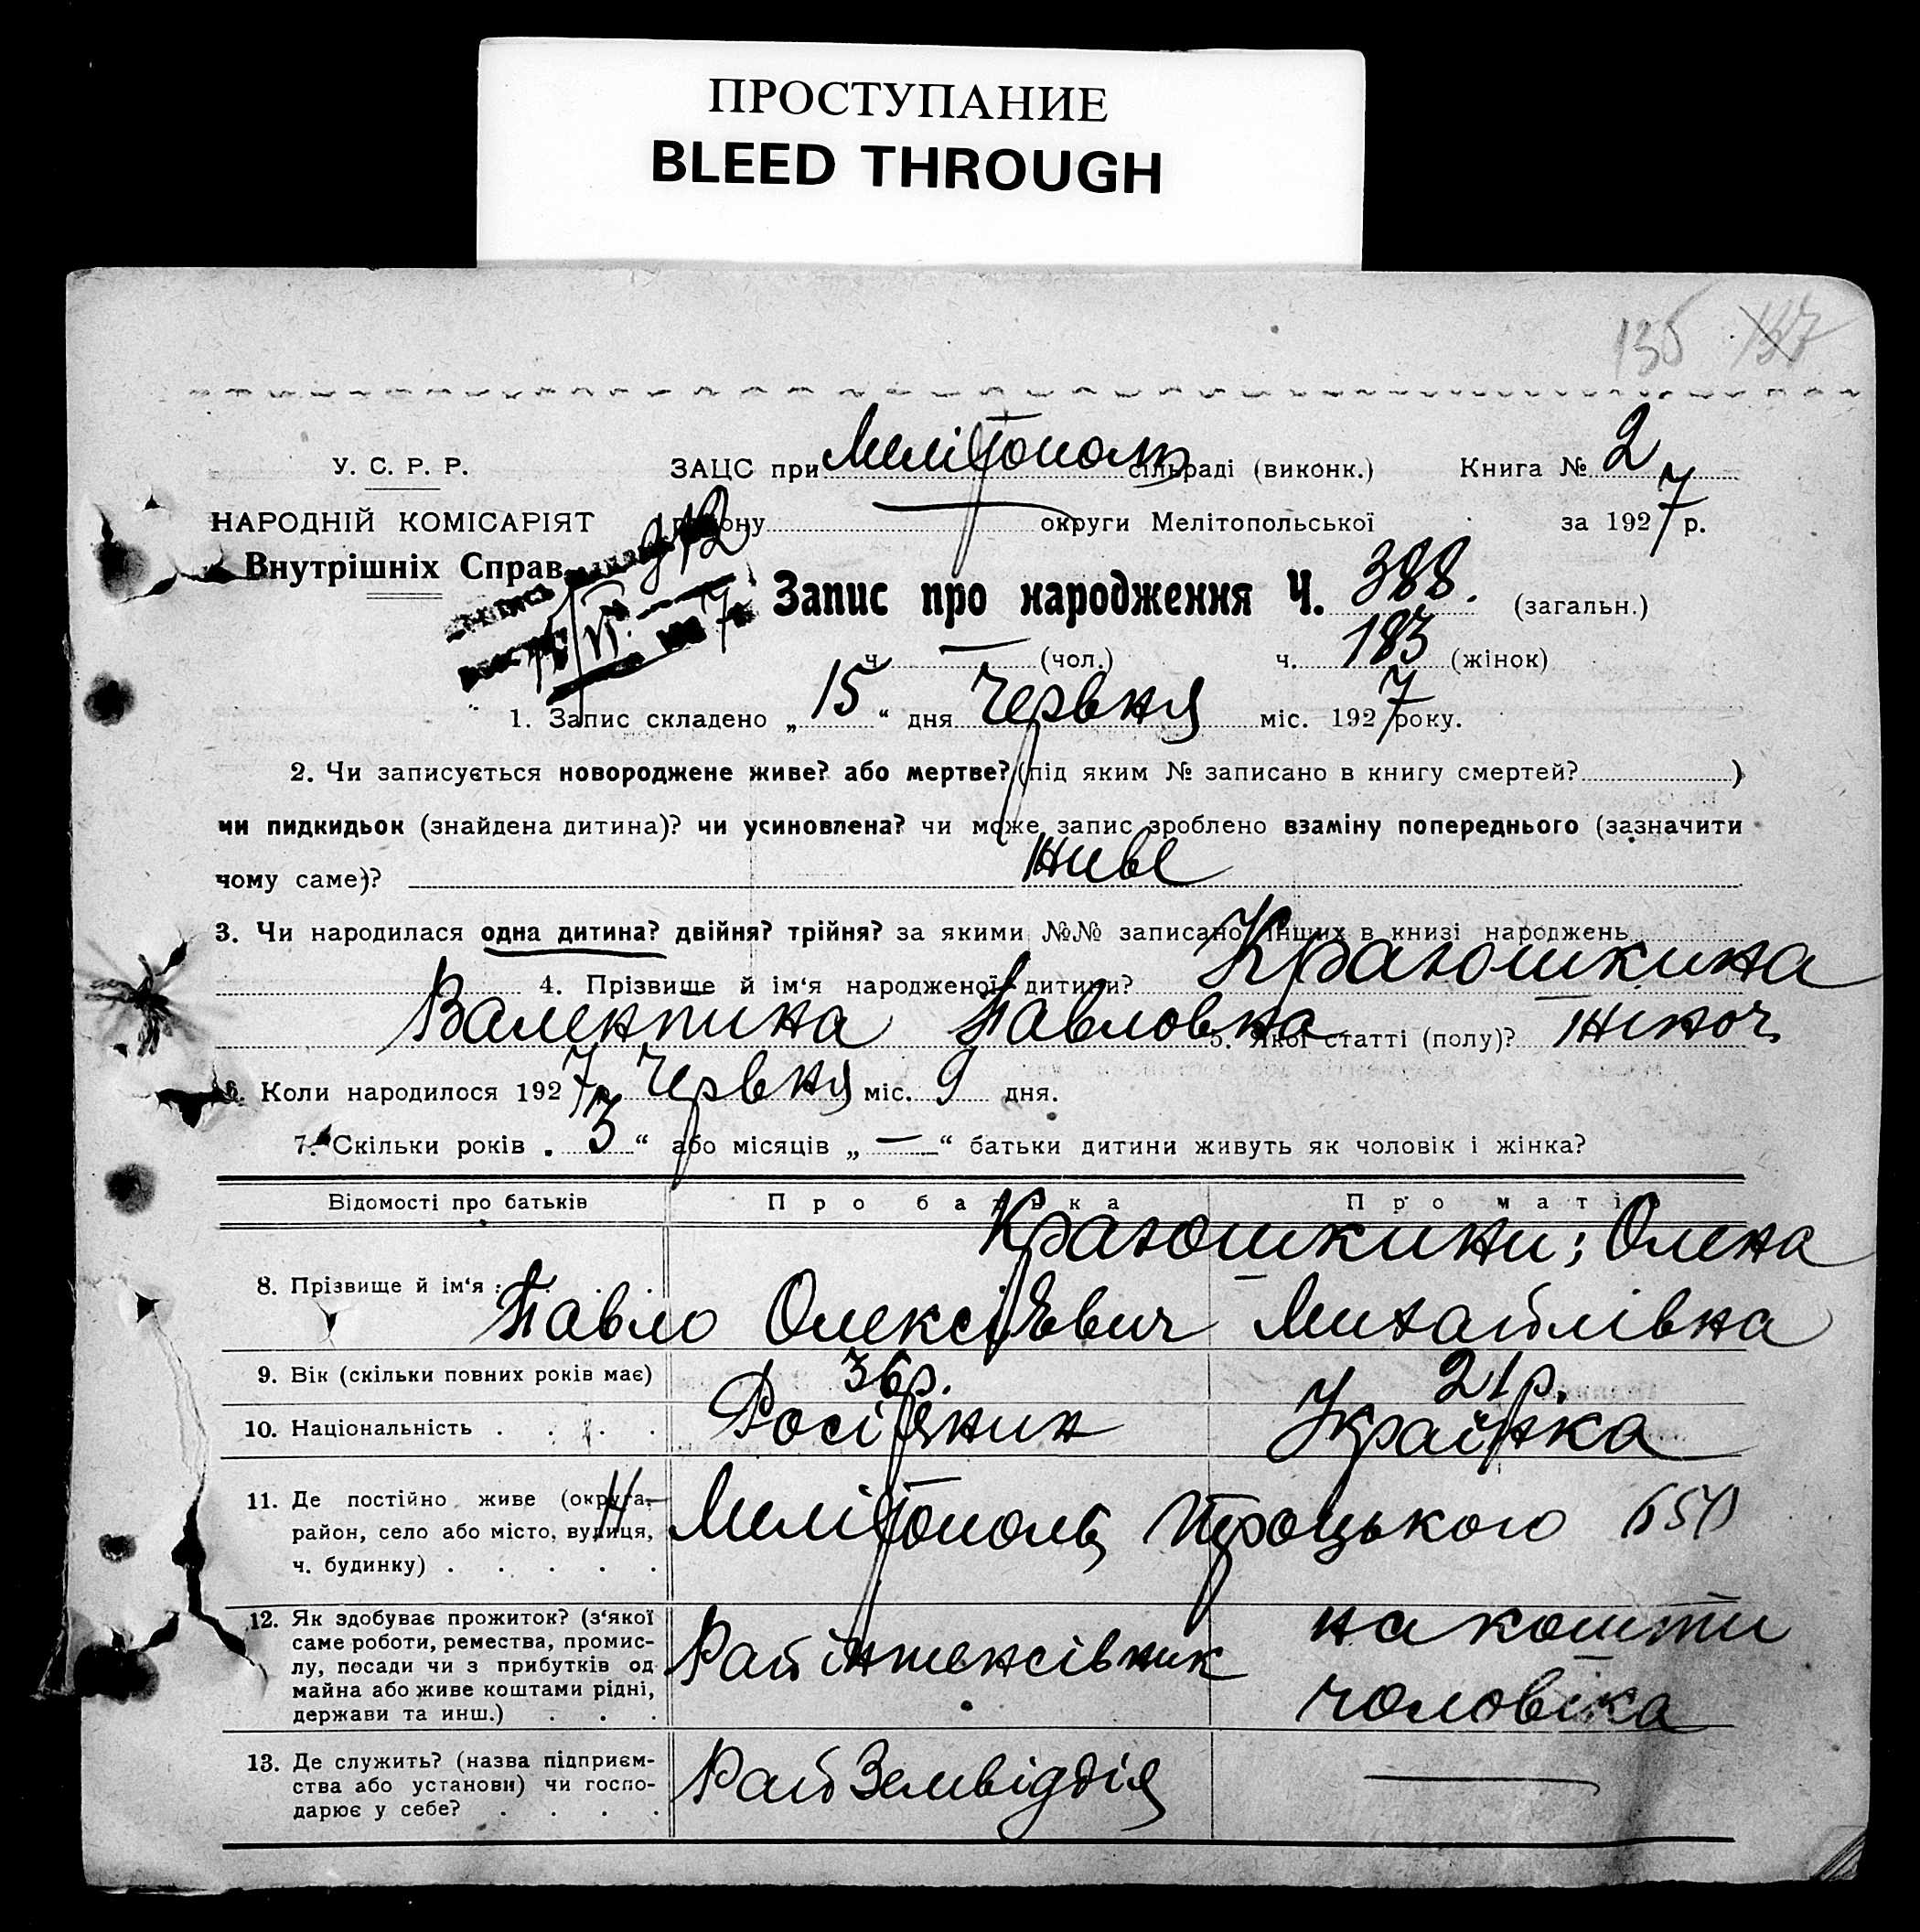 ПРОСТУПАНИЕ
BLEED THROUGH
135 137
У. С. Р. Р. ЗАЦС при Мелітополь сільраді (виконк.) Книга № 2
НАРОДНІЙ КОМІСАРІЯТ району округи Мелітопольської за 1927 р.
Внутрішніх Справ
Запис про народження Ч. 388. (загальн.)
ч. — (чол.) ч. 183 (жінок)
1. Запис складено „15“ дня Червня міс. 1927 року.
2. Чи записується новороджене живе? або мертве? (під яким № записано в книгу смертей? )
чи пидкидьок (знайдена дитина)? чи усиновлена? чи може запис зроблено взаміну попереднього (зазначити
чому саме)? живе
3. Чи народилася одна дитина? двійня? трійня? за якими №№ записано інших в книзі народжень
4. Прізвище й ім‘я народженої дитини? Кратошкина
Валентина Павловна 5. Якої статті (полу)? жіноч.
6. Коли народилося 1927 р. Червня міс. 9 дня.
7. Скільки років „3“ або місяців „—“ батьки дитини живуть як чоловік і жінка?
Відомості про батьків Про батька Про матір
Кратошкини; Олена
8. Прізвище й ім‘я : Павло Олексієвич Михайлівна
9. Вік (скільки повних років має) 36 р. 21 р.
10. Національність Росіянин Українка
11. Де постійно живе (округа, район, село або місто, вулиця, ч. будинку) Н-Мелітополь, Троцького
12. Як здобуває прожиток? (з‘якої
саме роботи, ремества, промис-
лу, посади чи з прибутків од
майна або живе коштами рідні,
держави та инш.) Рай інтенсівник на кошти чоловіка
13. Де служить? (назва підприєм-
ства або установи) чи госпо-
дарює у себе? Рай Земвідділ —